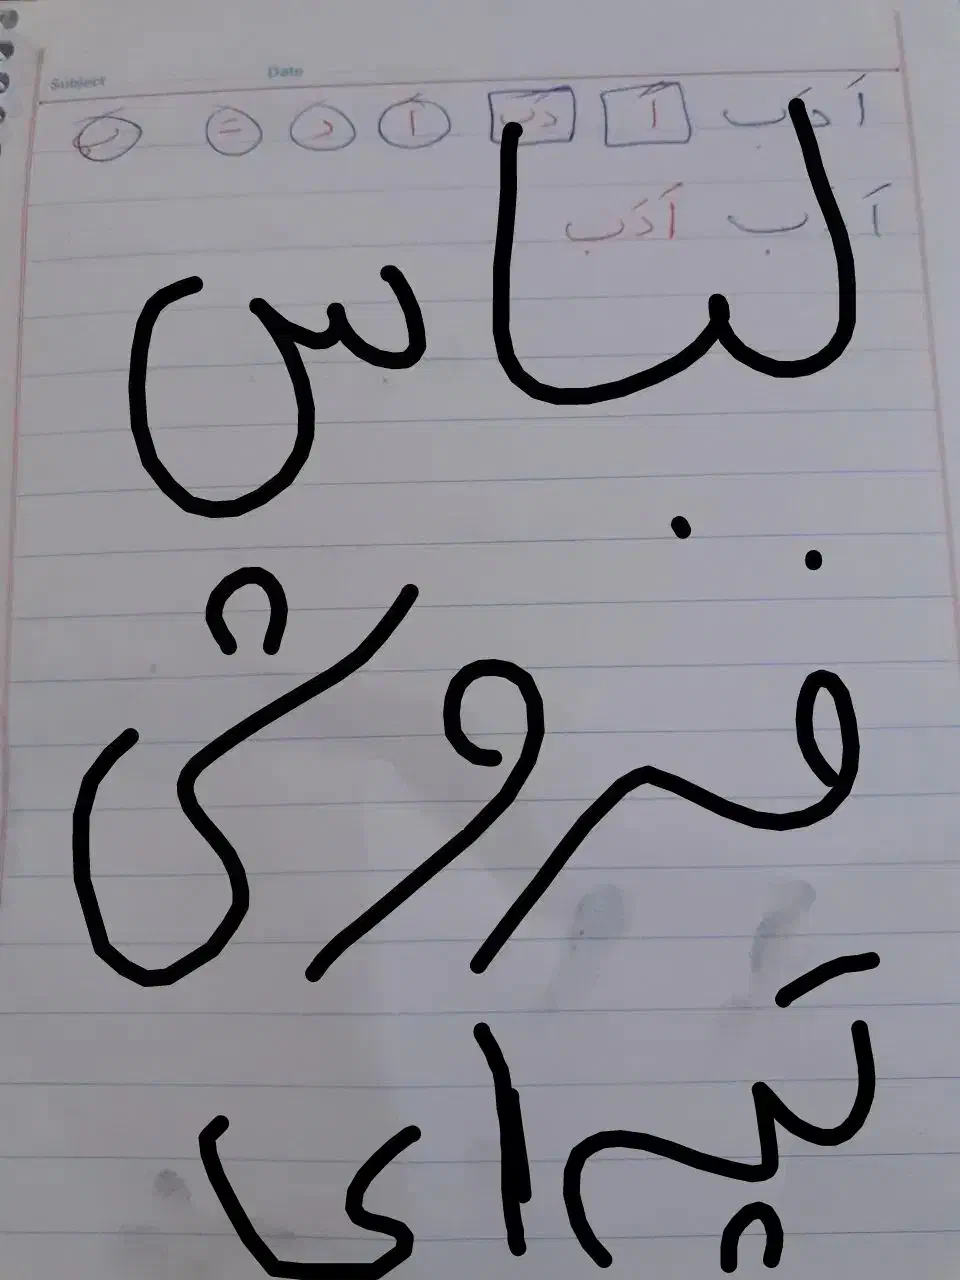 Subject Date
اَ دَب اَ دَب اَ د َ ب
اَ دَب اَدَب
لباس
فروش
تیرای